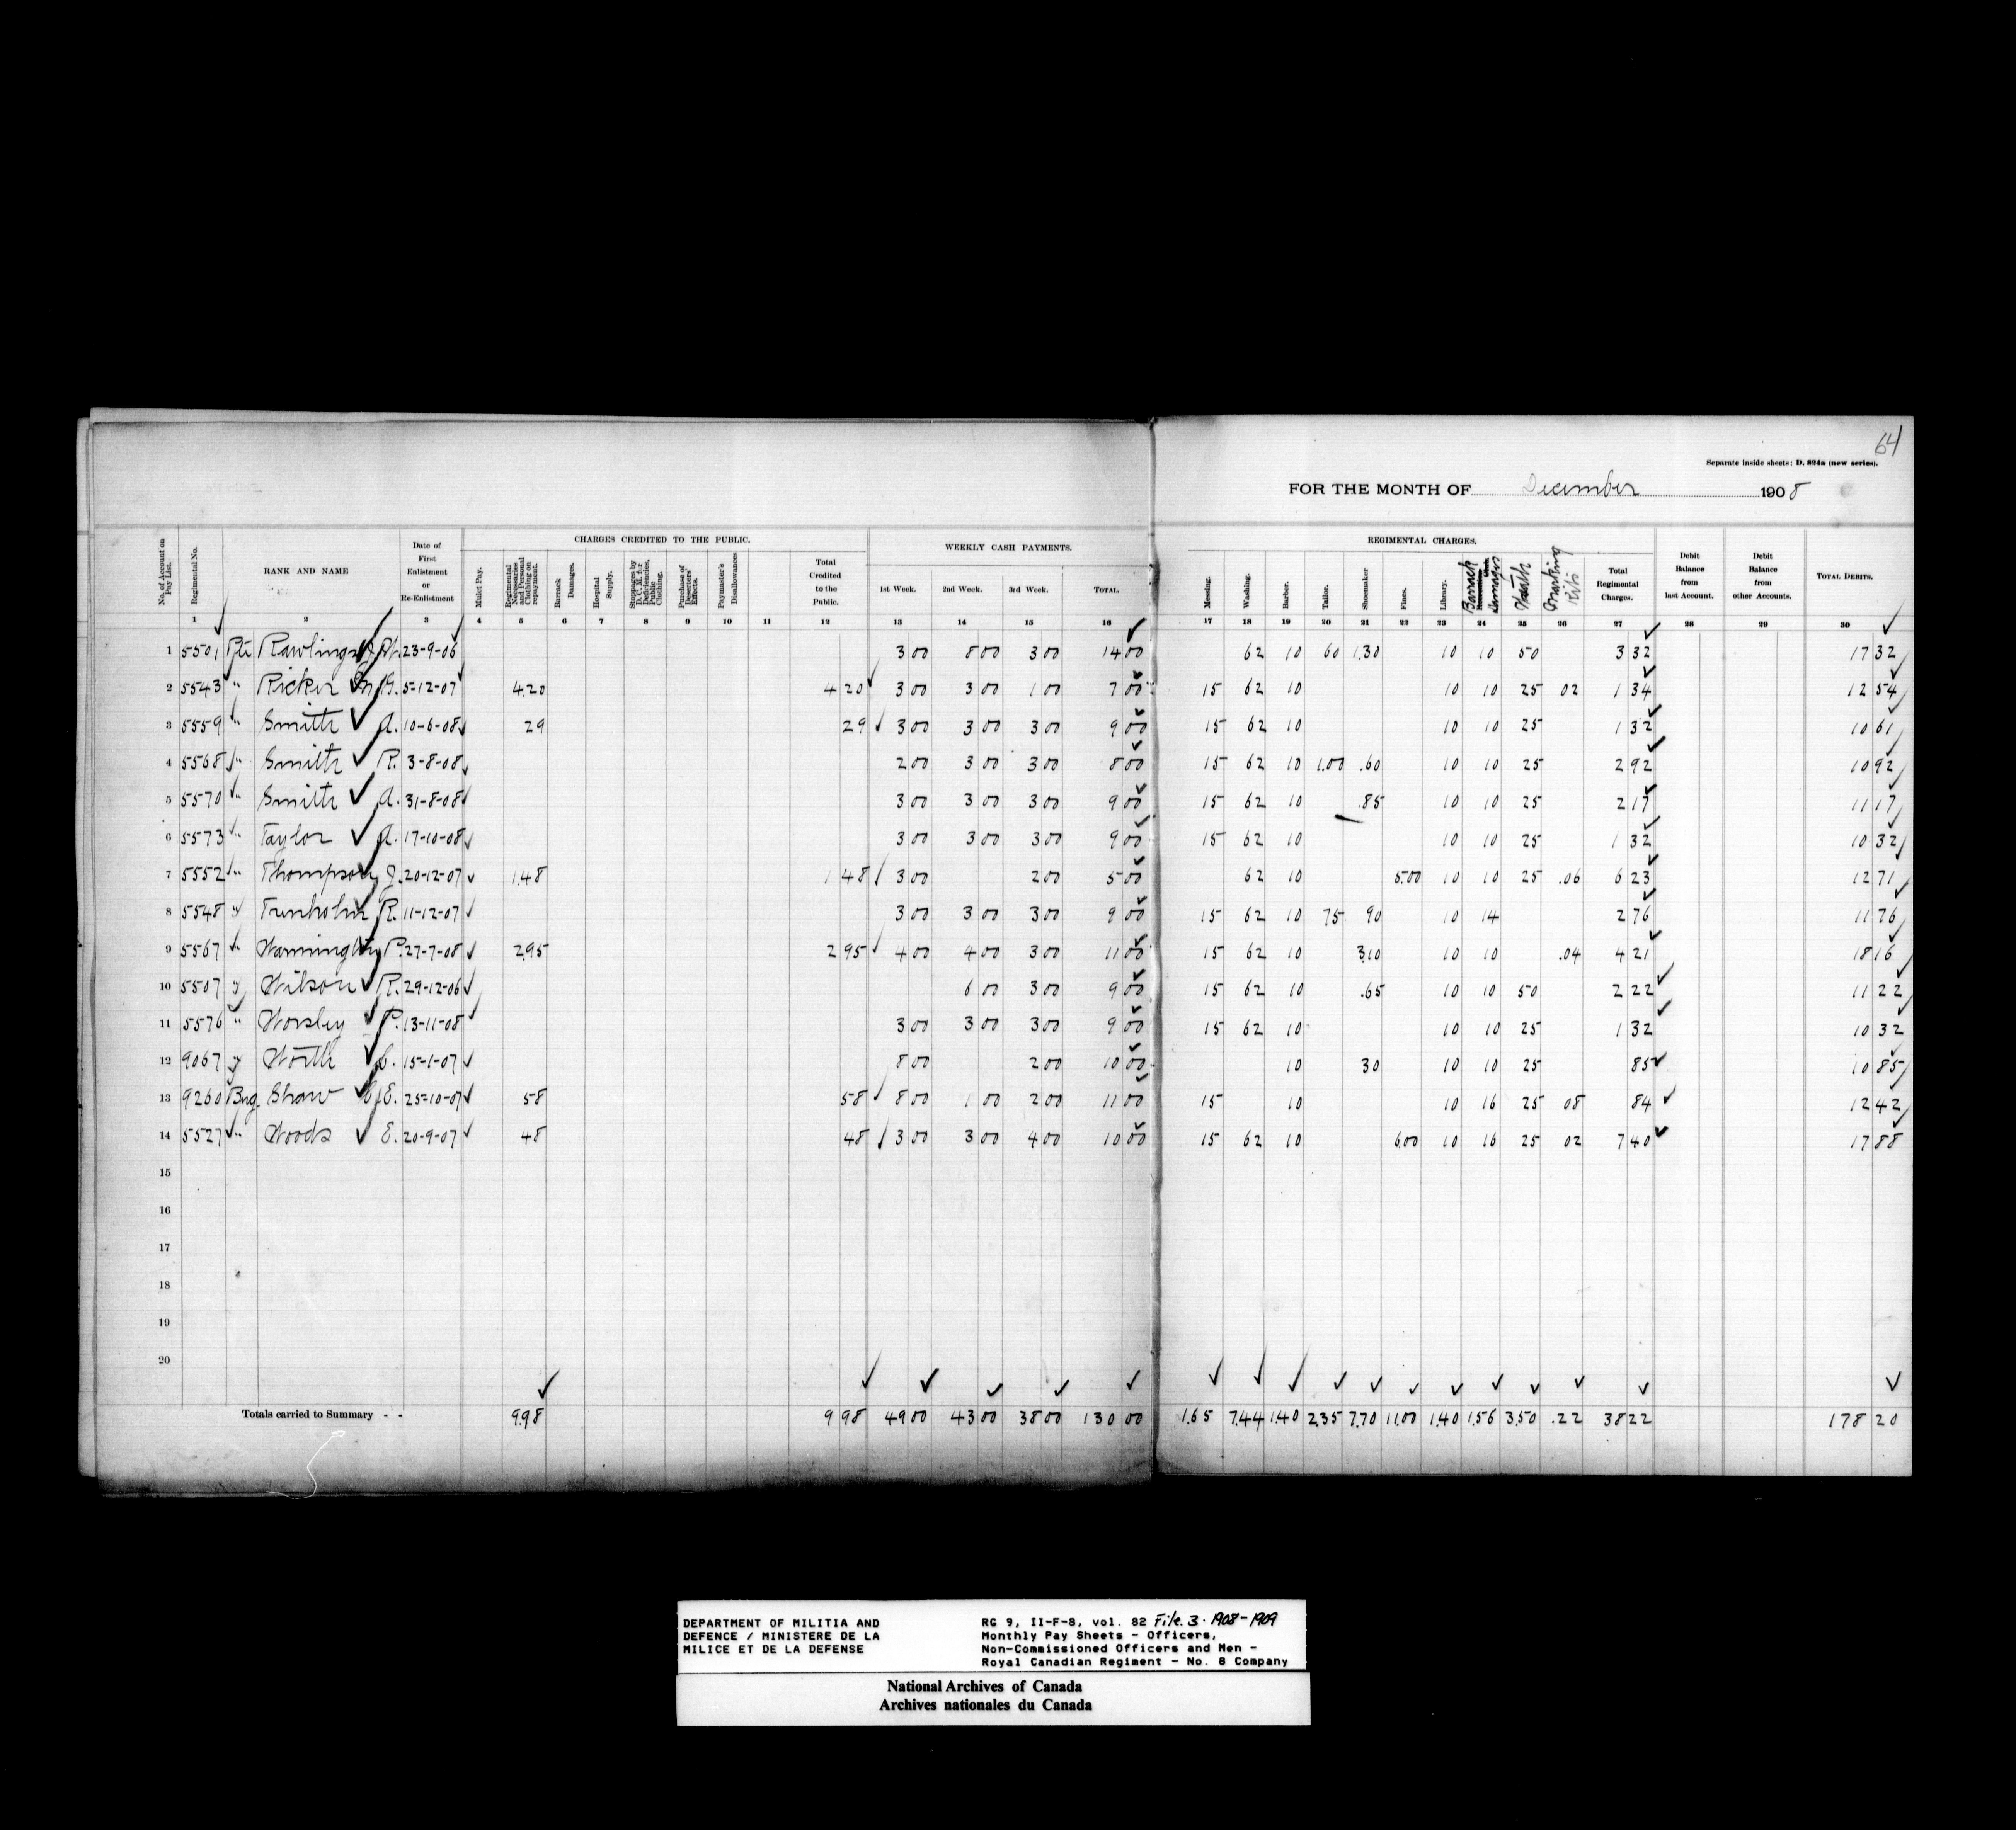 64
Separate inside sheets; D. 824a (new series).
FOR THE MONTH OF December 1908
No. of Account on Pay List. Regimental No. RANK AND NAME Date of First Enlistment or Re-Enlistment CHARGES CREDITED TO THE PUBLIC. WEEKLY CASH PAYMENTS. REGIMENTAL CHARGES. Debit Balance from last Account. Debit Balance other Accounts. TOTAL DEBITS.
Mulct Pay. Regimental Necessaries and Personal Clothing on repayment. Barrack Damages. Hospital Supply. Stoppages by D. C. M. for Deficiencies, Public Clothing. Purchase of Deserters' Effects. Paymaster's Disallowances Total Credited to the Public. 1st Week. 2nd Week. 3rd Week. TOTAL. Messing. Washing. Barber. Tailor. Shoemaker Fines. Library. Barrack Damages Marking Kits Total Regimental Charges.
1 2 3 4 5 6 7 8 9 10 11 12 13 14 15 16 17 18 19 20 21 22 23 24 25 26 27 28 29 30
1 5501 Pte Rawlings 23-9-06 3 00 8 00 3 00 14 00 62 10 60 1.30 10 10 50 3 32 17 32
2 5543 " Ricker 5-12-07 4.20 4 20 3 00 3 00 1 00 7 00 15 62 10 10 10 25 02 1 34 12 54
3 5559 " Smith A. 10-6-08 29 29 3 00 3 00 3 00 9 00 15 62 10 10 10 25 1 32 10 61
4 5568 " Smith R. 3-8-08 2 00 3 00 3 00 8 00 15 62 10 1.00 .60 10 10 25 2 92 10 92
5 5570 " Smith A. 31-8-08 3 00 3 00 3 00 9 00 15 62 10 .85 10 10 25 2 17 11 17
6 5573 " Taylor A. 17-10-08 3 00 3 00 3 00 9 00 15 62 10 10 10 25 1 32 10 32
7 5552 " Thompson J. 20-12-07 1.48 1 48 3 00 2 00 5 00 62 10 5.00 10 10 25 .06 6 23 12 71
8 5548 " Trenholm R. 11-12-07 3 00 3 00 3 00 9 00 15 62 10 75 90 10 14 2 76 11 76
9 5567 " Warmington P. 27-7-08 2.95 2 95 4 00 4 00 3 00 11 00 15 62 10 3.10 10 10 .04 4 21 18 16
10 5507 " Wilson R. 29-12-06 6 00 3 00 9 00 15 62 10 .65 10 10 50 2 22 11 22
11 5576 " Worsley P. 13-11-08 3 00 3 00 3 00 9 00 15 62 10 10 10 25 1 32 10 32
12 9067 " Worth C. 15-1-07 8 00 2 00 10 00 10 30 10 10 25 85 10 85
13 9260 Bug. Shaw E. 25-10-07 58 58 8 00 1 00 2 00 11 00 15 10 10 16 25 08 84 12 42
14 5527 " Woods E. 20-9-07 48 48 3 00 3 00 4 00 10 00 15 62 10 6.00 10 16 25 02 7 40 17 88
15
16
17
18
19
20
Totals carried to Summary - - 9.98 9 98 49 00 43 00 38 00 130 00 1.65 7.44 1.40 2.35 7.70 11.00 1.40 1.56 3.50 .22 38 22 178 20
DEPARTMENT OF MILITIA AND
DEFENCE / MINISTERE DE LA
MILICE ET DE LA DEFENSE
RG 9, II-F-8, vol. 82 File. 3. 1908-1909
Monthly Pay Sheets - Officers,
Non-Commissioned Officers and Men -
Royal Canadian Regiment - No. 8 Company
National Archives of Canada
Archives nationales du Canada